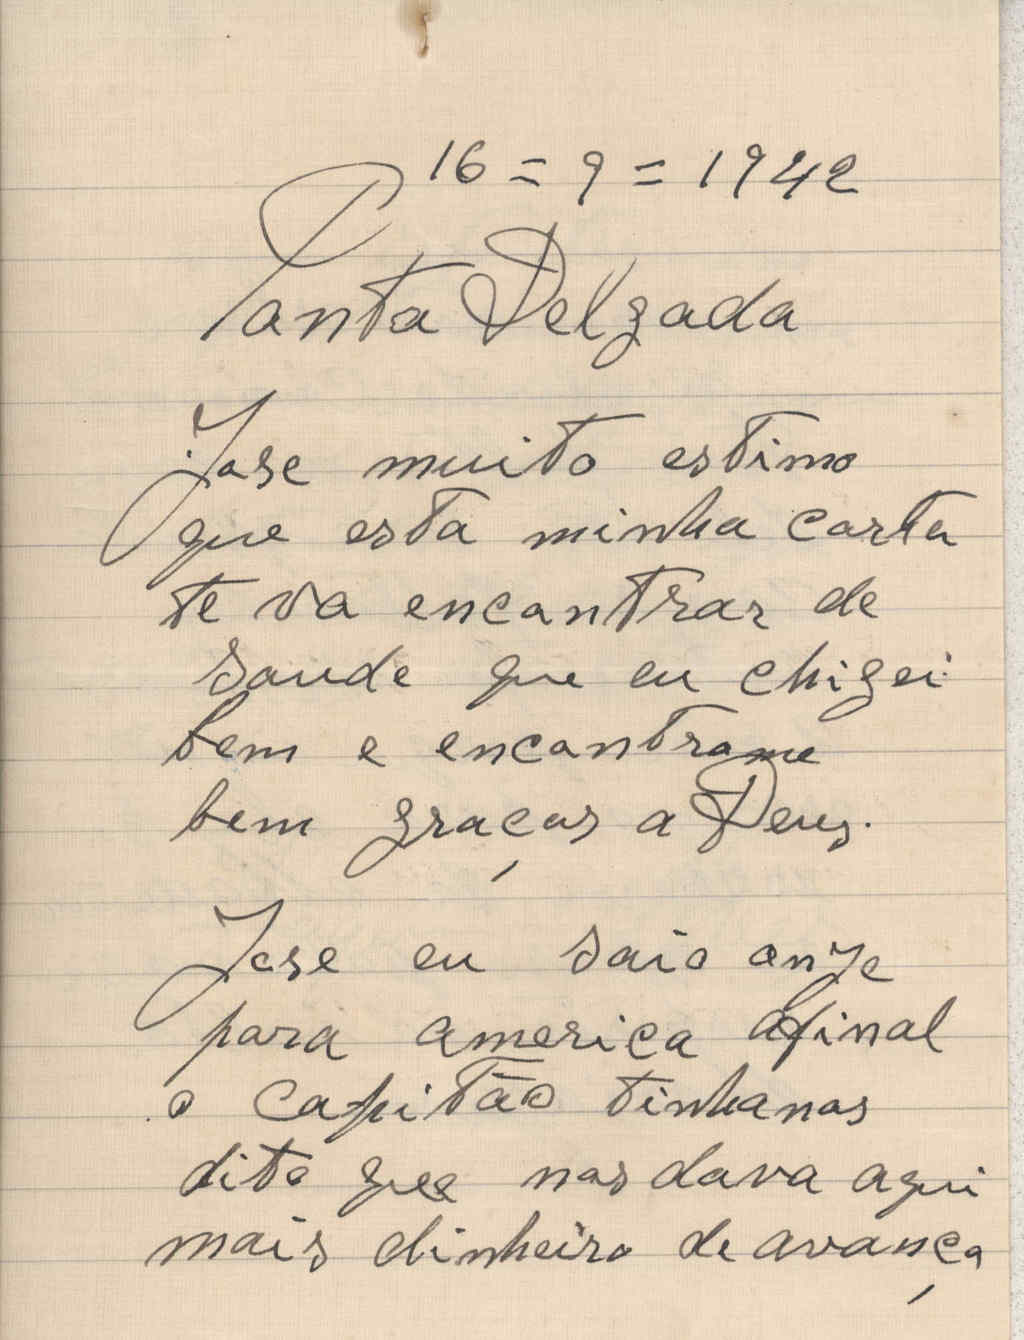 16=9=1942
Panta Delgada
Jose muito estimo
que esta minha carta
te va encantrar de
saude que eu chigei
bem e encantrame
bem graças a Deus.
Jose eu saio onje
para america afinal
o capitão tinhanas
dito que nas dava aqui
mais dinheiro de avança